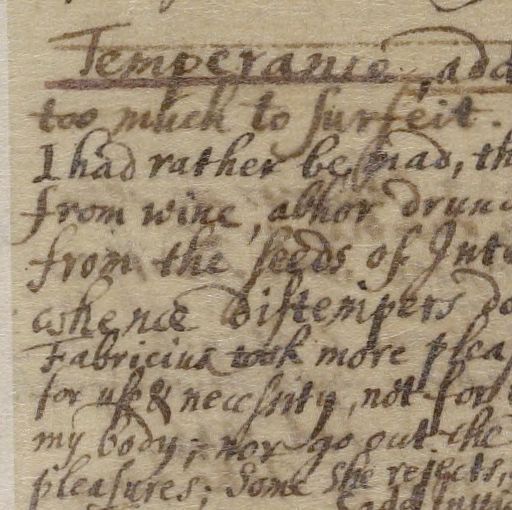 Temperance, add
too much to surfeit.
I had rather be mad, th
from wine, abhor drun
from the seeds of Inte
whence Distempers do
Fabricius took more pleas
for use & necessity, not for
my body; nor go out the
pleasures; Some she rejects,